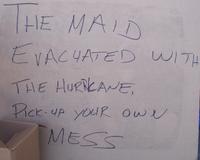 THE MAID
EVACUATED WITH
THE HURRICANE.
PICK-UP YOUR OWN
MESS